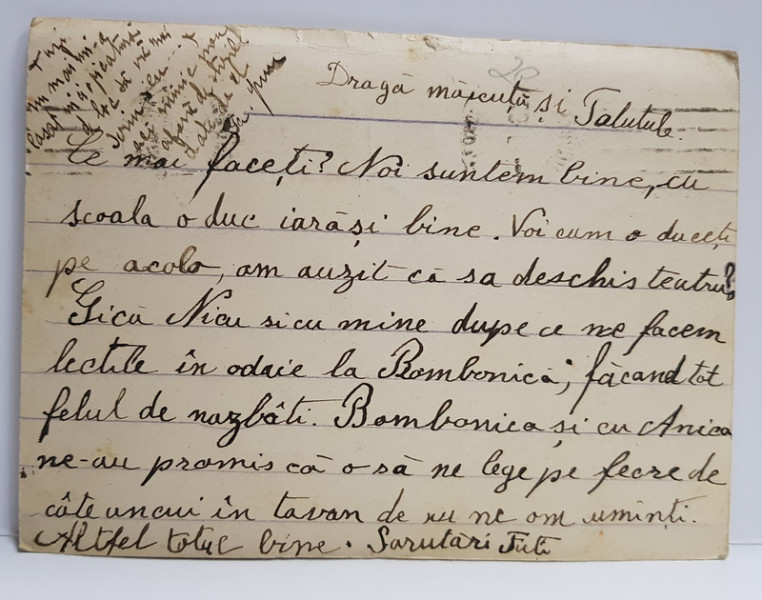 Dragă măicuță și Talutule.
Ce mai faceți? Noi suntem bine, cu
scoala o duc iarăși bine. Voi cum o duceți
pe acolo, am auzit că sa deschis teatru?
Gică Nicu si cu mine dupe ce ne facem
lectile în odaie la Bombonica, făcand tot
felul de nazbâti. Bombonica și cu Anica
ne-au promis că o să ne lege pe fecre de
câte un cui în tavan de nu ne om uminți.
Altfel totul bine. Sarutări